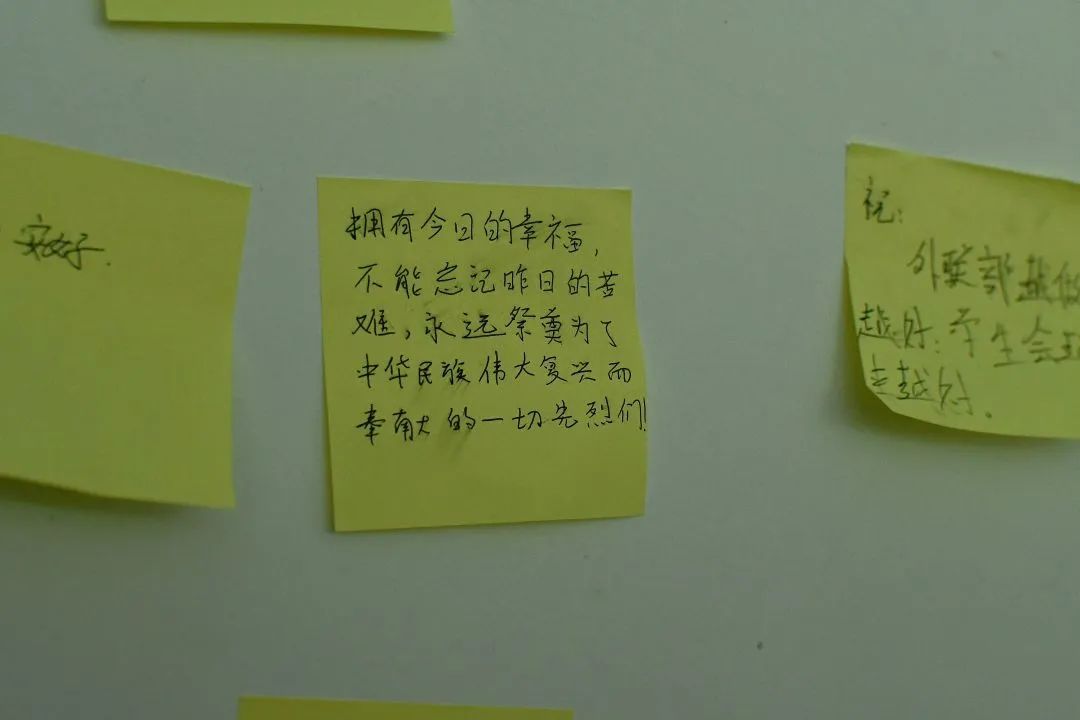 好.
拥有今日的幸福,
不能忘记昨日的苦
难,永远祭奠为了
中华民族伟大复兴而
奉献的一切先烈们!
祝:
外联部越做
越好;学生会
越好.